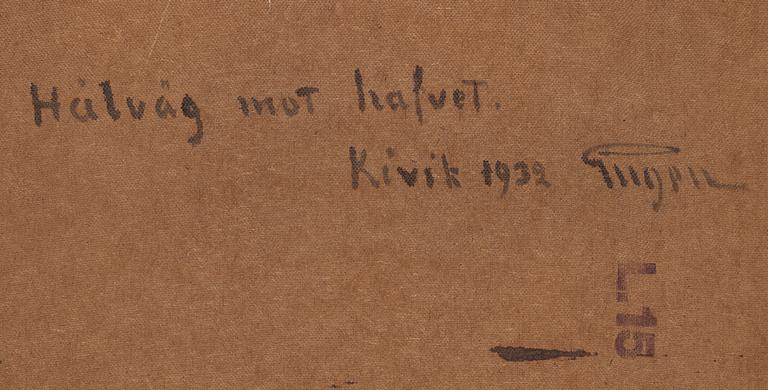 Hålväg mot hafvet.
Kivik 1932
L.15